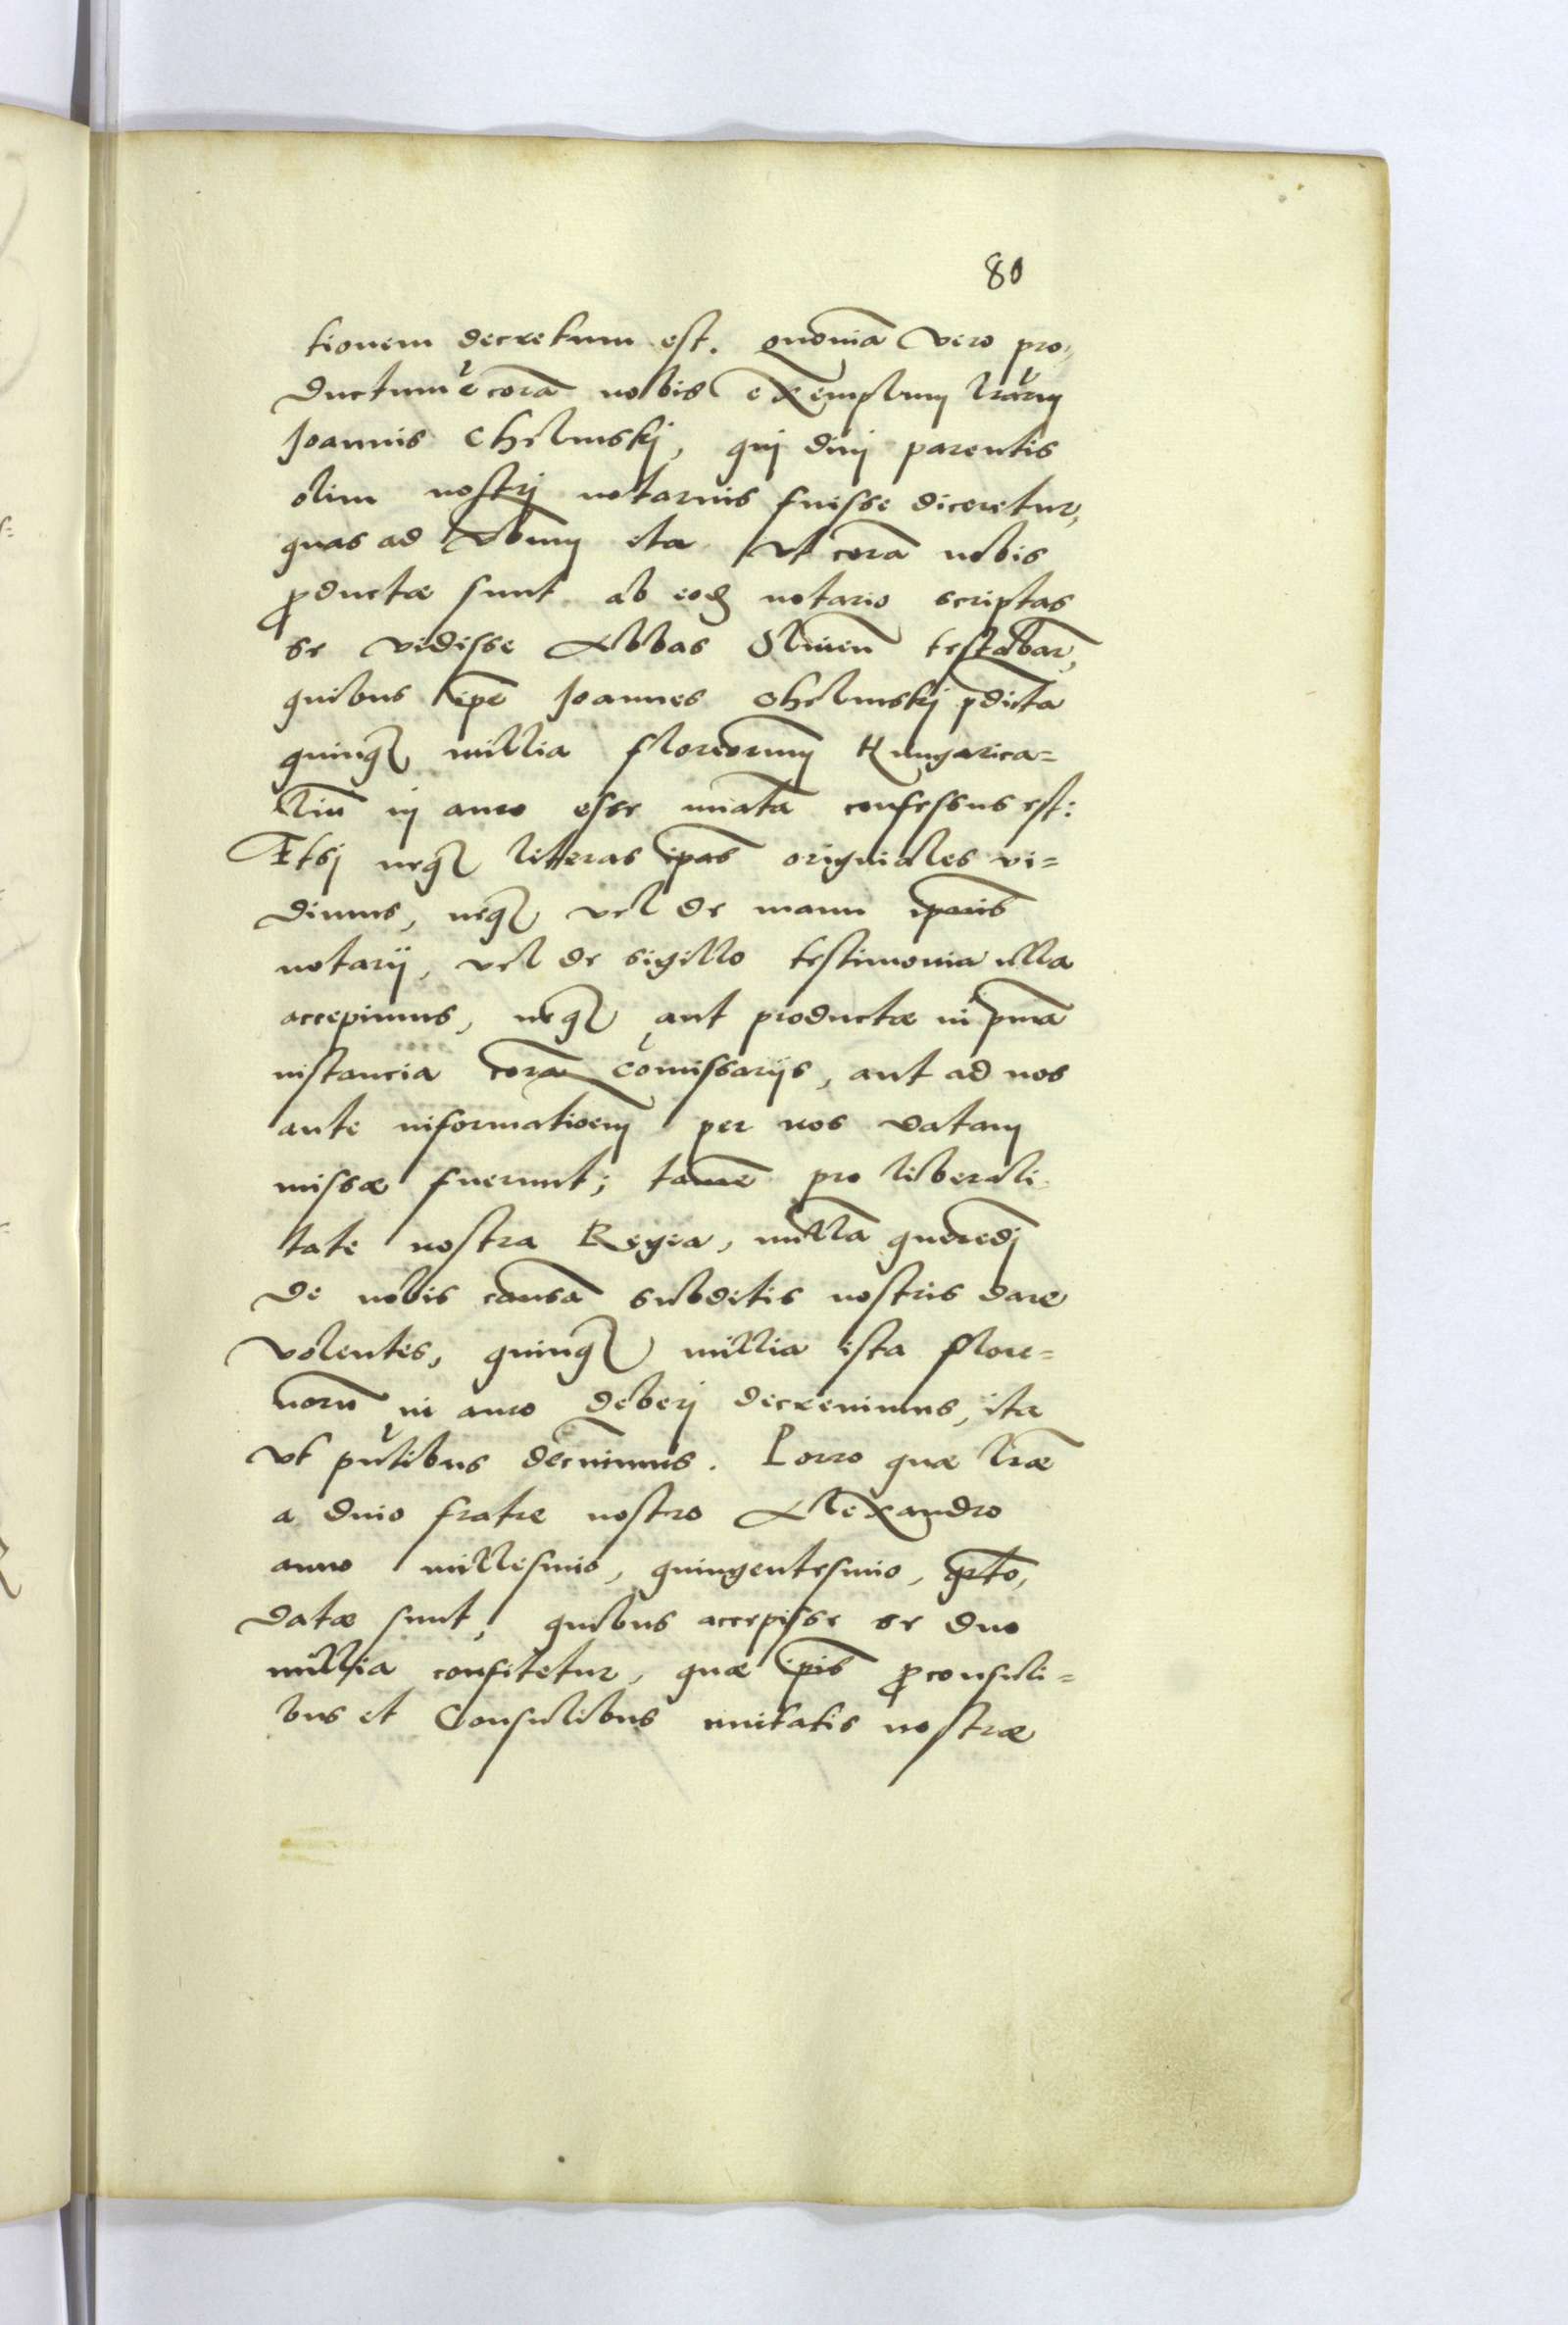 80
tionem decretum est. quoniã vero pro,
ductum ẽ corã nobis exemplum lrarum
Joannis Chelmskj, quj diuj parentis
olim nostrj notarius fuisse diceretur,
quas ad verbum ita vt corã nobis
ꝓductæ sunt ab eodẽ notario scriptas
se vidisse Abbas Oliuen̄ testabar̃,
quibus ip̃e Joannes Chelmskj p̃dicta
quinqꝫ millia florenorum Hungarica=
liũ in auro esse mutata confessus est:
Etsj neqꝫ litteras ip̃as originales vi=
dimus, neqꝫ vel de manu ip̃ius
notarij, vel de sigillo testimonia ulla
accepimus, neqꝫ aut productæ in p̃ma
instancia corã Com̃issarijs, aut ad nos
ante informatioẽm per nos datam
missæ fuerunt; tamẽ pro liberali,
tate nostra Regia, nullã querẽdj
de nobis causã subditis nostris dare
volentes, quinqꝫ millia ista flore=
norũ in auro deberj decreuimus, ita
vt p̃ntibus decernimus. Porro quæ lr̃æ
a diuo fratre nostro Alexandro
anno millesimo, quingentesimo, qrto,
datæ sunt, quibus accepisse se duo
millia confitetur, quæ ip̃is ꝓconsuli=
bus et Consulibus ciuitatis nostræ